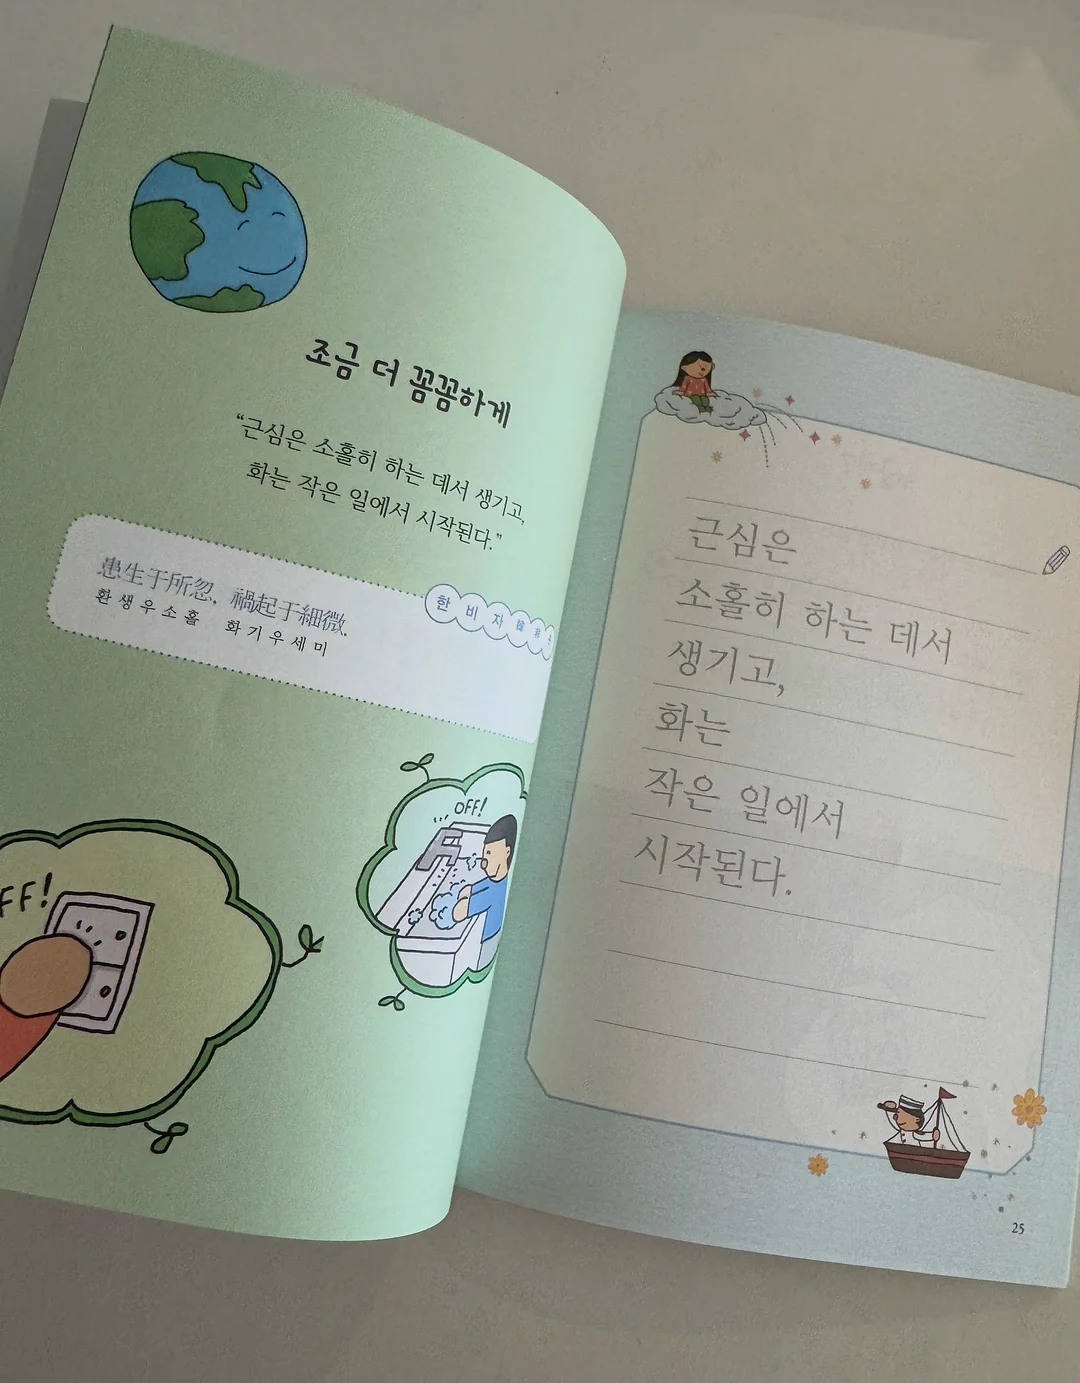 조금 더 꼼꼼하게
“근심은 소홀히 하는 데서 생기고,
화는 작은 일에서 시작된다.”
患生于所忽, 禍起于細微.
환생우소홀 화기우세미
한비자 韓非子
OFF!
FF!
근심은
소홀히 하는 데서
생기고,
화는
작은 일에서
시작된다.
25